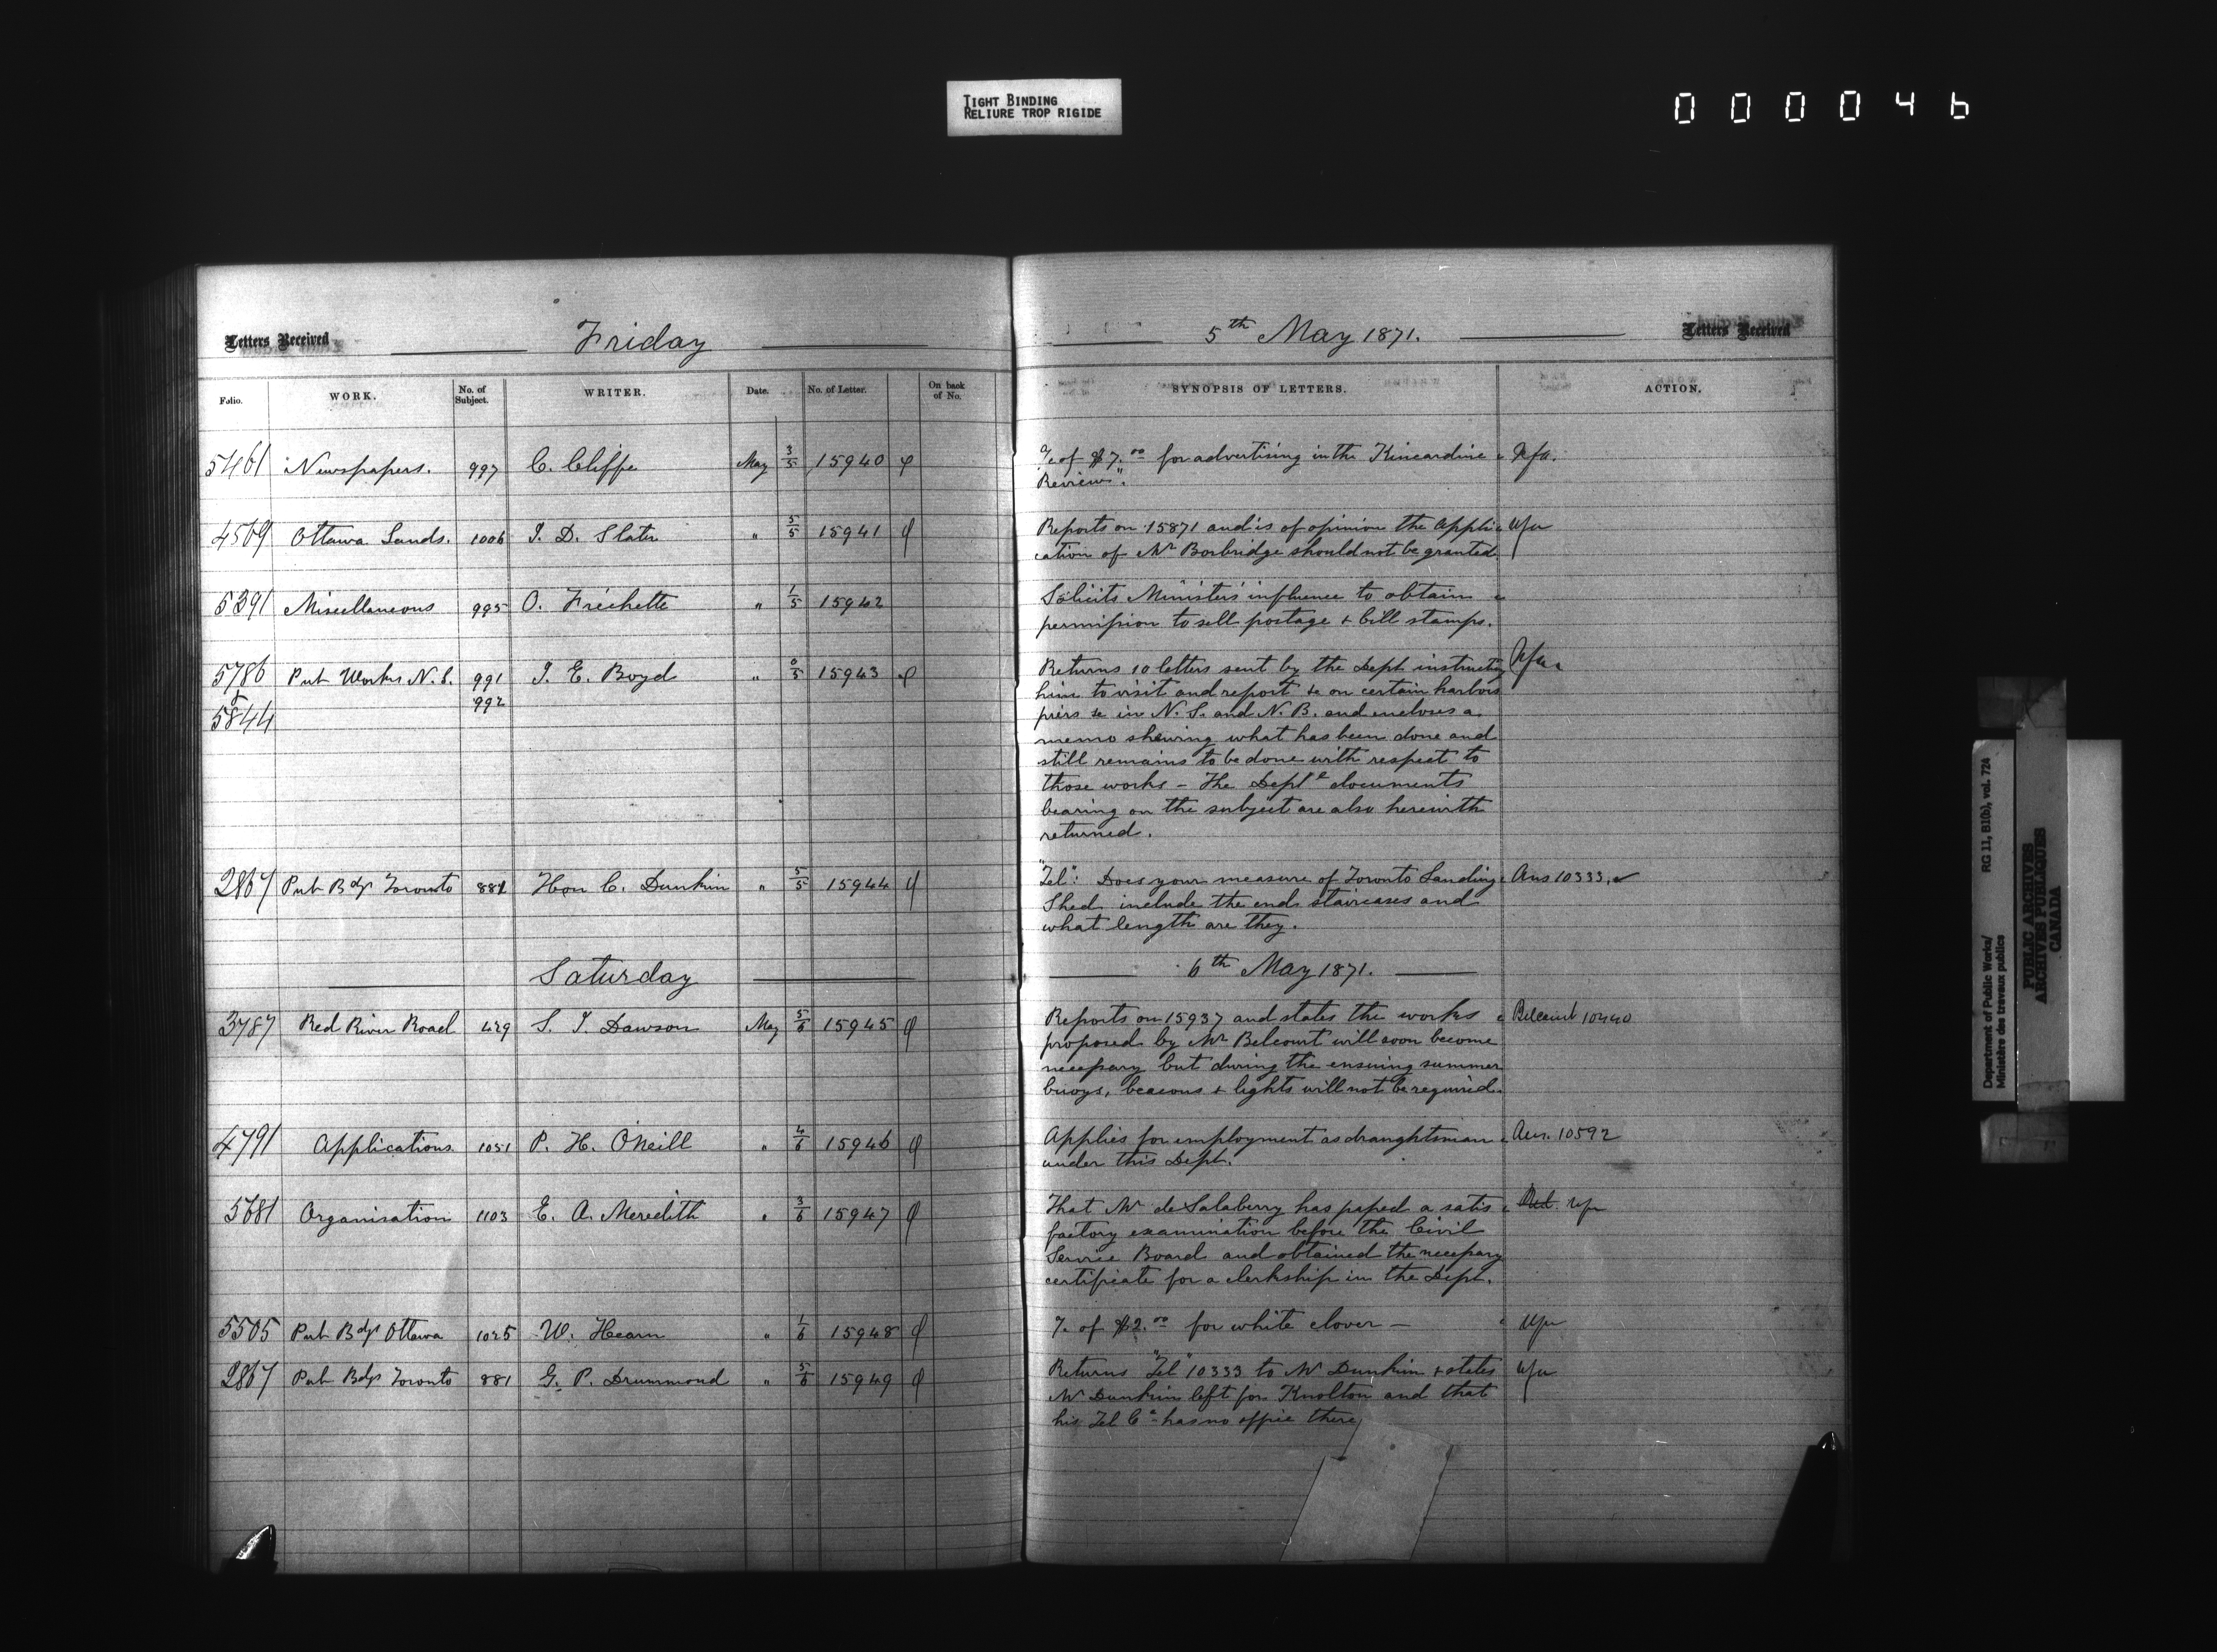 TIGHT BINDING
RELIURE TROP RIGIDE
000046
Letters Received
Friday
5th May 1871.
Letters Received
Folio.
WORK.
No. of Subject.
WRITER.
Date.
No. of Letter.
On back of No.
SYNOPSIS OF LETTERS.
ACTION.
5461 Newspapers. 997 C. Cliffe May 3/5 15940
of $7.00 for advertising in the Kincardine
Review".
4509 Ottawa Lands. 1006 J. D. Slater " 5/5 15941
Reports on 15871 and is of opinion the appli
cation of Mr Borbridge should not be granted.
5391 Miscellaneous 995 O. Fréchette " 1/5 15942
Solicits Minister's influence to obtain
permission to sell postage + bill stamps.
5786 Pub Works N.S. 991 J. E. Boyd " 0/5 15943
5844 992
Returns 10 letters sent by the Dept instructing
him to visit and report &c on certain harbors
piers &c in N. S. and N. B. and encloses a
memo shewing what has been done and
still remains to be done with respect to
those works – The Deptl documents
bearing on the subject are also herewith
returned.
2867 Pub Bdgs Toronto 881 Hon C. Dunkin " 5/5 15944
"Tel": Does your measure of Toronto Landing
Shed include the end staircases and
what length are they.
Ans 10333.
Saturday
6th May 1871.
3787 Red River Road 429 S. J. Dawson May 5/6 15945
Reports on 15937 and states the works
proposed by Mr Belcourt will soon become
necessary but during the ensuing summer
buoys, beacons + lights will not be required.
Belcourt 10440
4791 Applications. 1051 P. H. O'Neill " 4/6 15946
Applies for employment as draughtsman
under this Dept.
Ans. 10592
5681 Organisation 1103 E. A. Meredith " 3/6 15947
That Mr de Salaberry has passed a satis
factory examination before the Civil
Service Board and obtained the necessary
certificate for a clerkship in the Dept.
5505 Pub Bdgs Ottawa 1025 W. Hearn " 1/6 15948
of $2.00 for white clover –
2867 Pub Bdgs Toronto 881 G. P. Drummond " 5/6 15949
Returns "Tel" 10333 to Mr Dunkin + states
Mr Dunkin left for Knolton and that
his Tel Co has no office there
Department of Public Works/ RG 11, B1(b), vol. 724
Ministère des travaux publics
PUBLIC ARCHIVES
ARCHIVES PUBLIQUES
CANADA